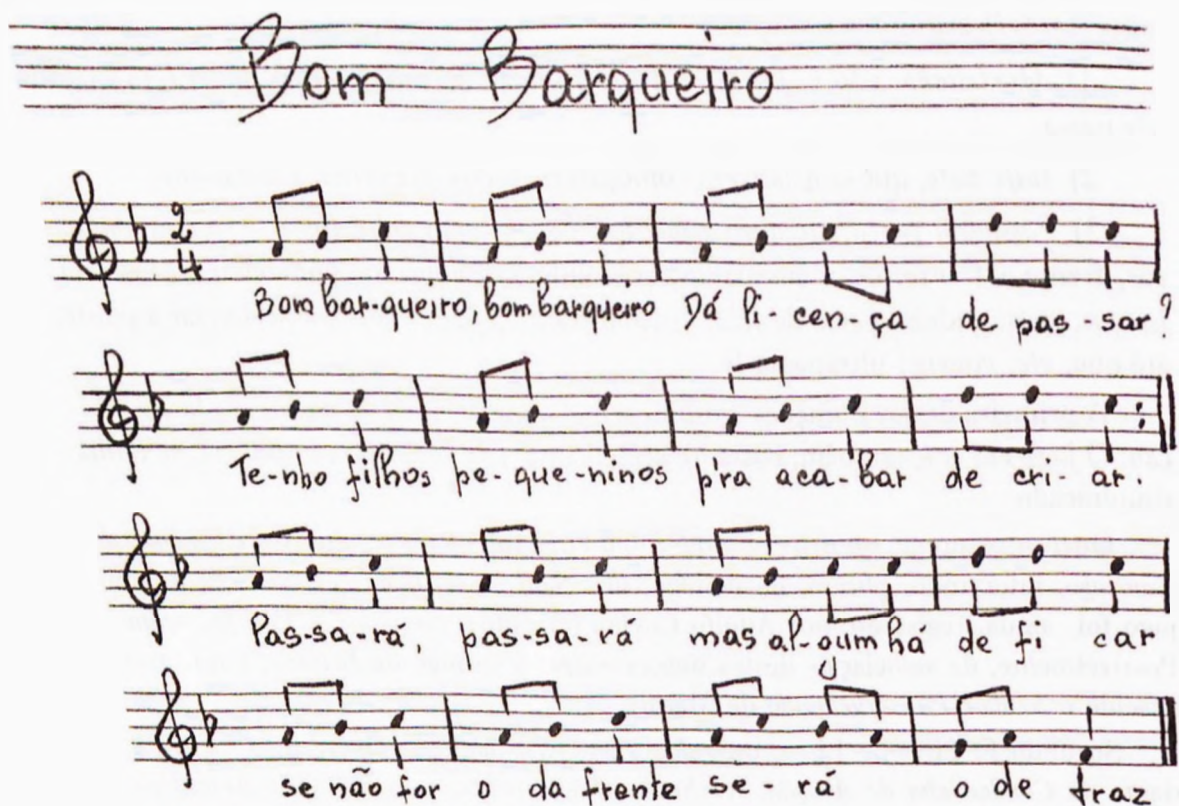 Bom Barqueiro
2
4
Bom bar-queiro, bom barqueiro Dá li-cen-ça de pas sar?
Te-nho filhos pe-que-ninos pra aca-bar de cri-ar.
Pas-sa-rá, pas-sa-rá mas al-gum há de fi car
se não for o da frente se rá o de traz